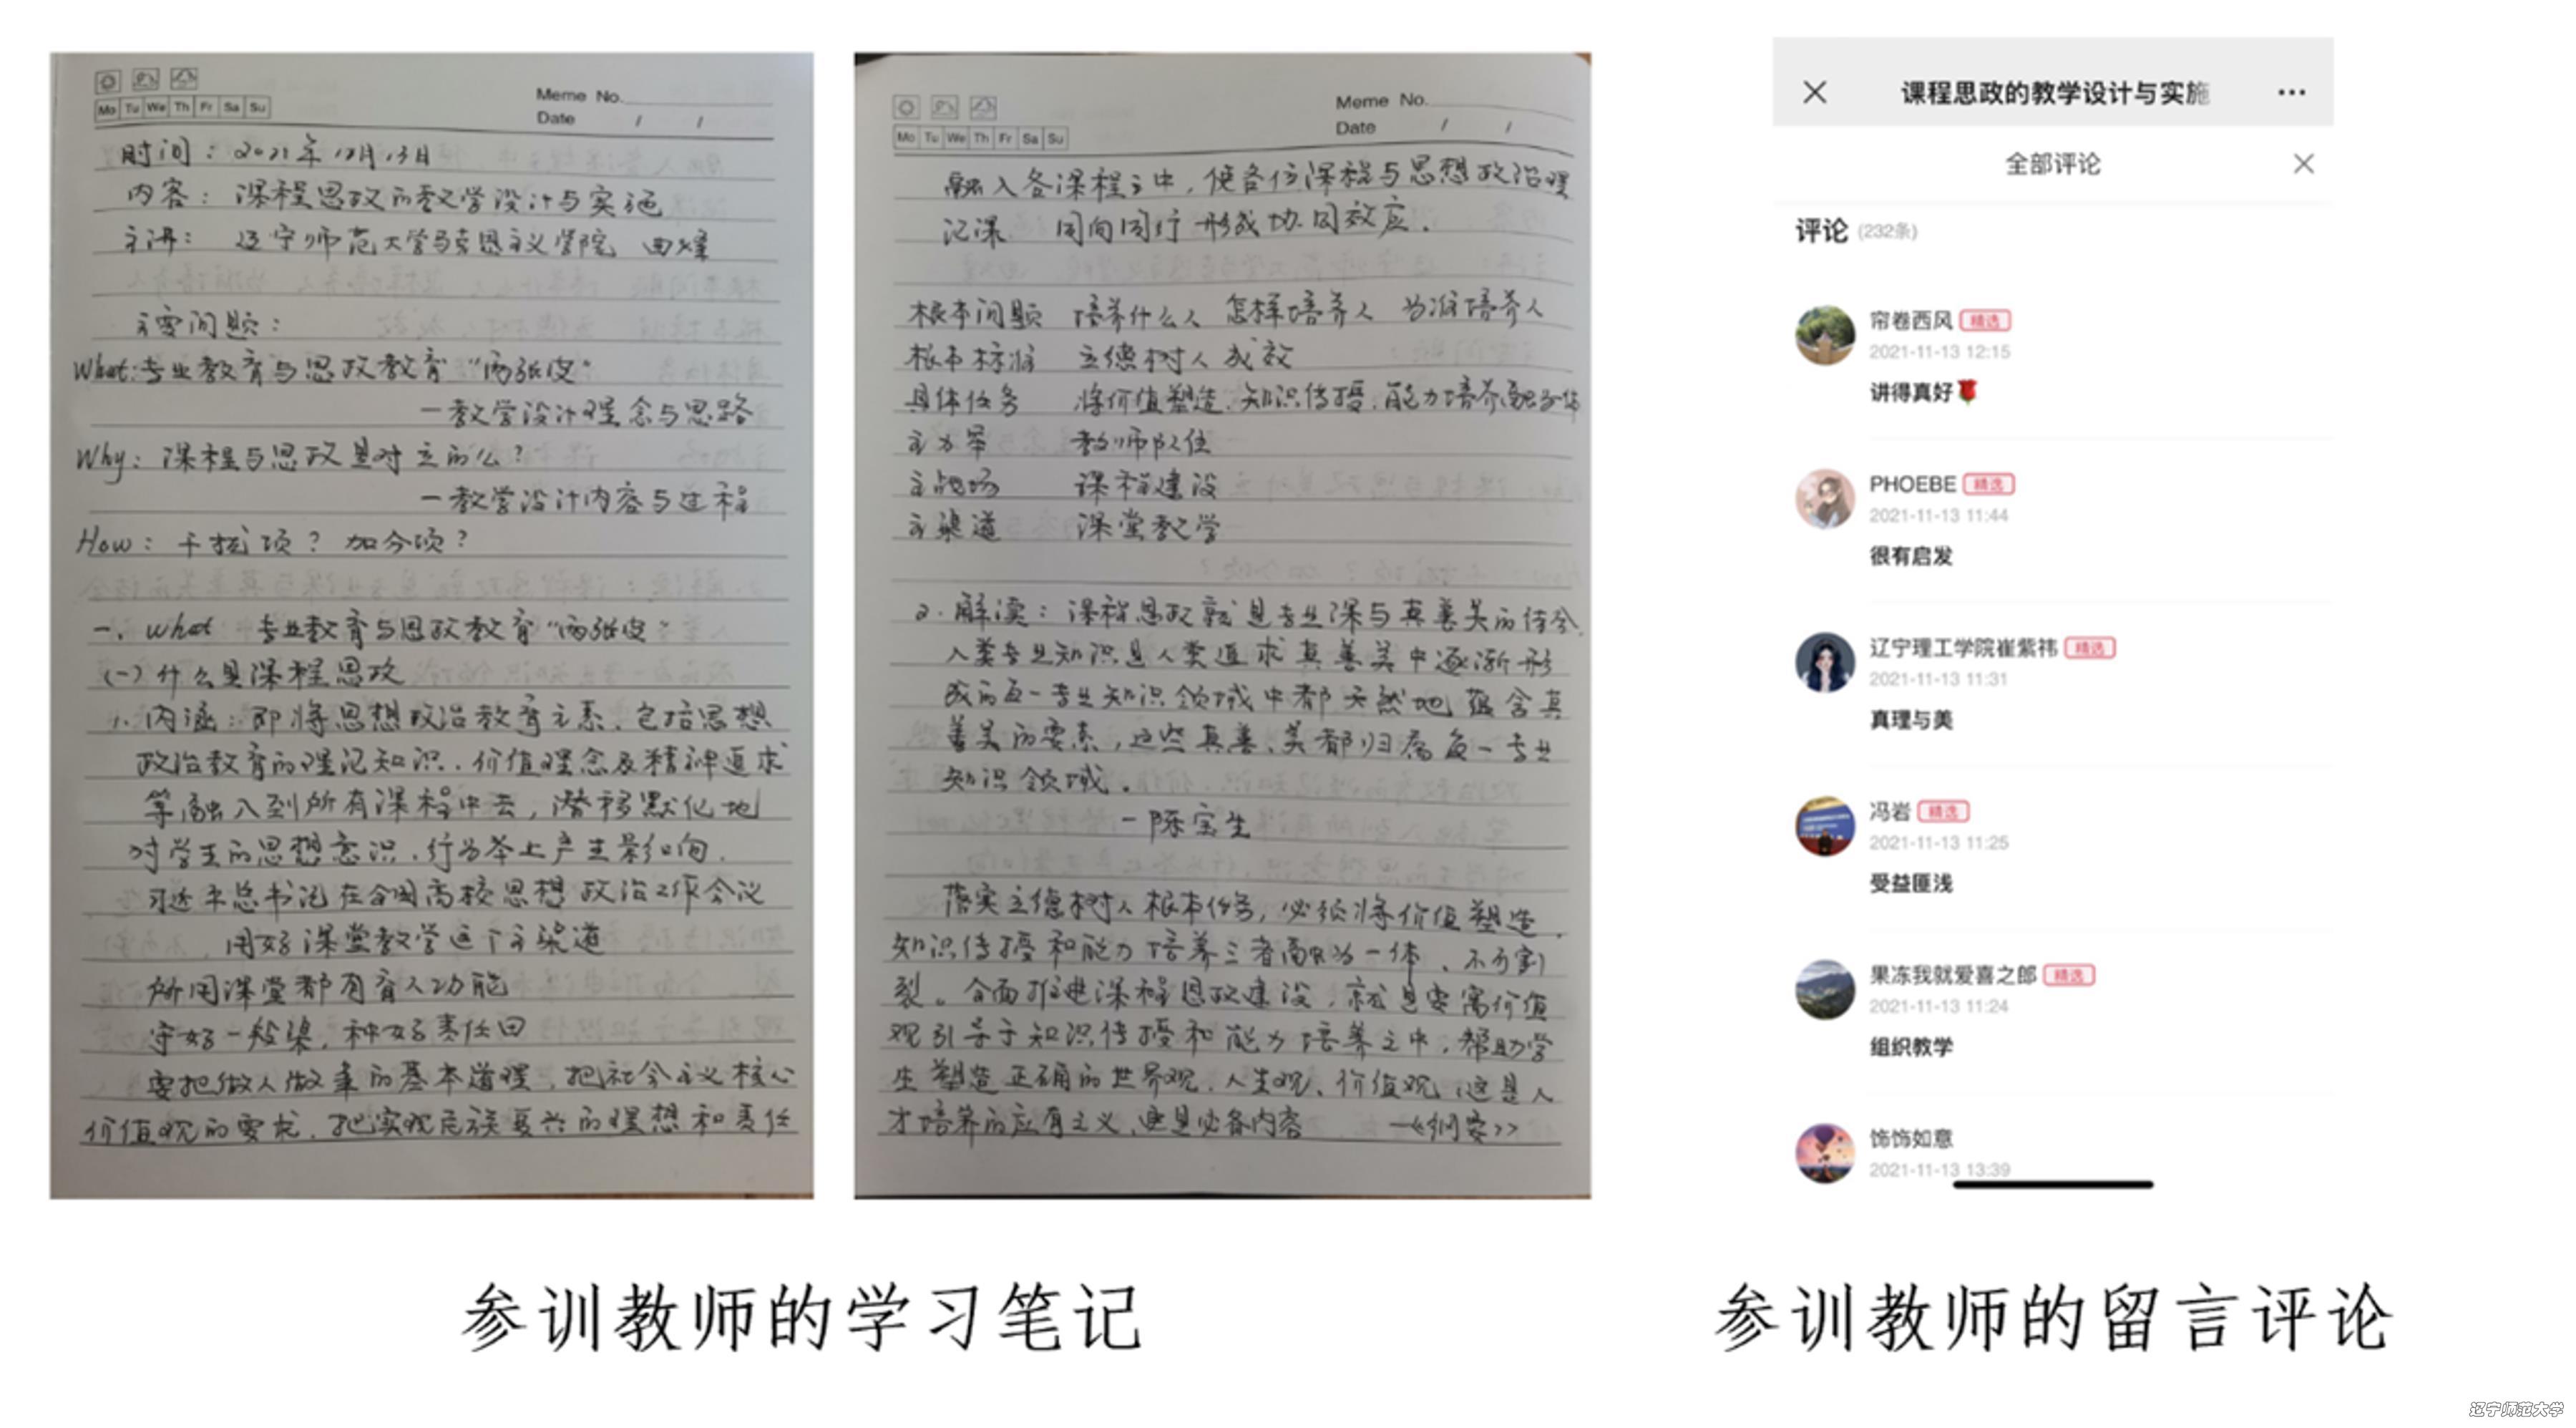 Mo Tu We Th Fr Sa Su
Meme No.
Date / /
时间：2021年11月13日
内容：课程思政的教学设计与实施
主讲：辽宁师范大学马克思主义学院 曲峰
主要问题：
What:专业教育与思政教育“两张皮”
—教学设计理念与思路
Why：课程与思政是对立的么？
—教学设计内容与过程
How：干扰项？加分项？
一、What 专业教育与思政教育“两张皮”
(一)什么是课程思政
1.内涵：即将思想政治教育元素，包括思想
政治教育的理论知识、价值理念及精神追求
等融入到所有课程中去，潜移默化地
对学生的思想意识、行为举止产生影响。
习近平总书记在全国高校思想政治工作会议
，用好课堂教学这个主渠道
所用课堂都有育人功能
守好一段渠，种好责任田
要把做人做事的基本道理，把社会主义核心
价值观的要求，把实现民族复兴的理想和责任
Mo Tu We Th Fr Sa Su
Meme No.
Date / /
融入各课程之中，使各位课程与思想政治理
论课 同向同行 形成协同效应.
根本问题 培养什么人 怎样培养人 为谁培养人
根本标准 立德树人成效
具体任务 将价值塑造、知识传授、能力培养融为一体
主力军 教师队伍
主战场 课程建设
主渠道 课堂教学
2.解读：课程思政就是专业课与真善美的结合.
人类专业知识是人类追求真善美中逐渐形
成的每一专业知识领域中都天然地蕴含真
善美的要素，这些真、善、美都归属每一专业
知识领域。
—陈宝生
落实立德树人根本任务，必须将价值塑造、
知识传授和能力培养三者融为一体、不可割
裂。全面推进课程思政建设，就是要寓价值
观引导于知识传授和能力培养之中，帮助学
生塑造正确的世界观、人生观、价值观，这是人
才培养的应有之义，更是必备内容 —《纲要》
课程思政的教学设计与实施
全部评论
评论 (232条)
帘卷西风 精选
2021-11-13 12:15
讲得真好🌹
PHOEBE 精选
2021-11-13 11:44
很有启发
辽宁理工学院崔紫祎 精选
2021-11-13 11:31
真理与美
冯岩 精选
2021-11-13 11:25
受益匪浅
果冻我就爱喜之郎 精选
2021-11-13 11:24
组织教学
饰饰如意
2021-11-13 13:39
参训教师的学习笔记
参训教师的留言评论
辽宁师范大学